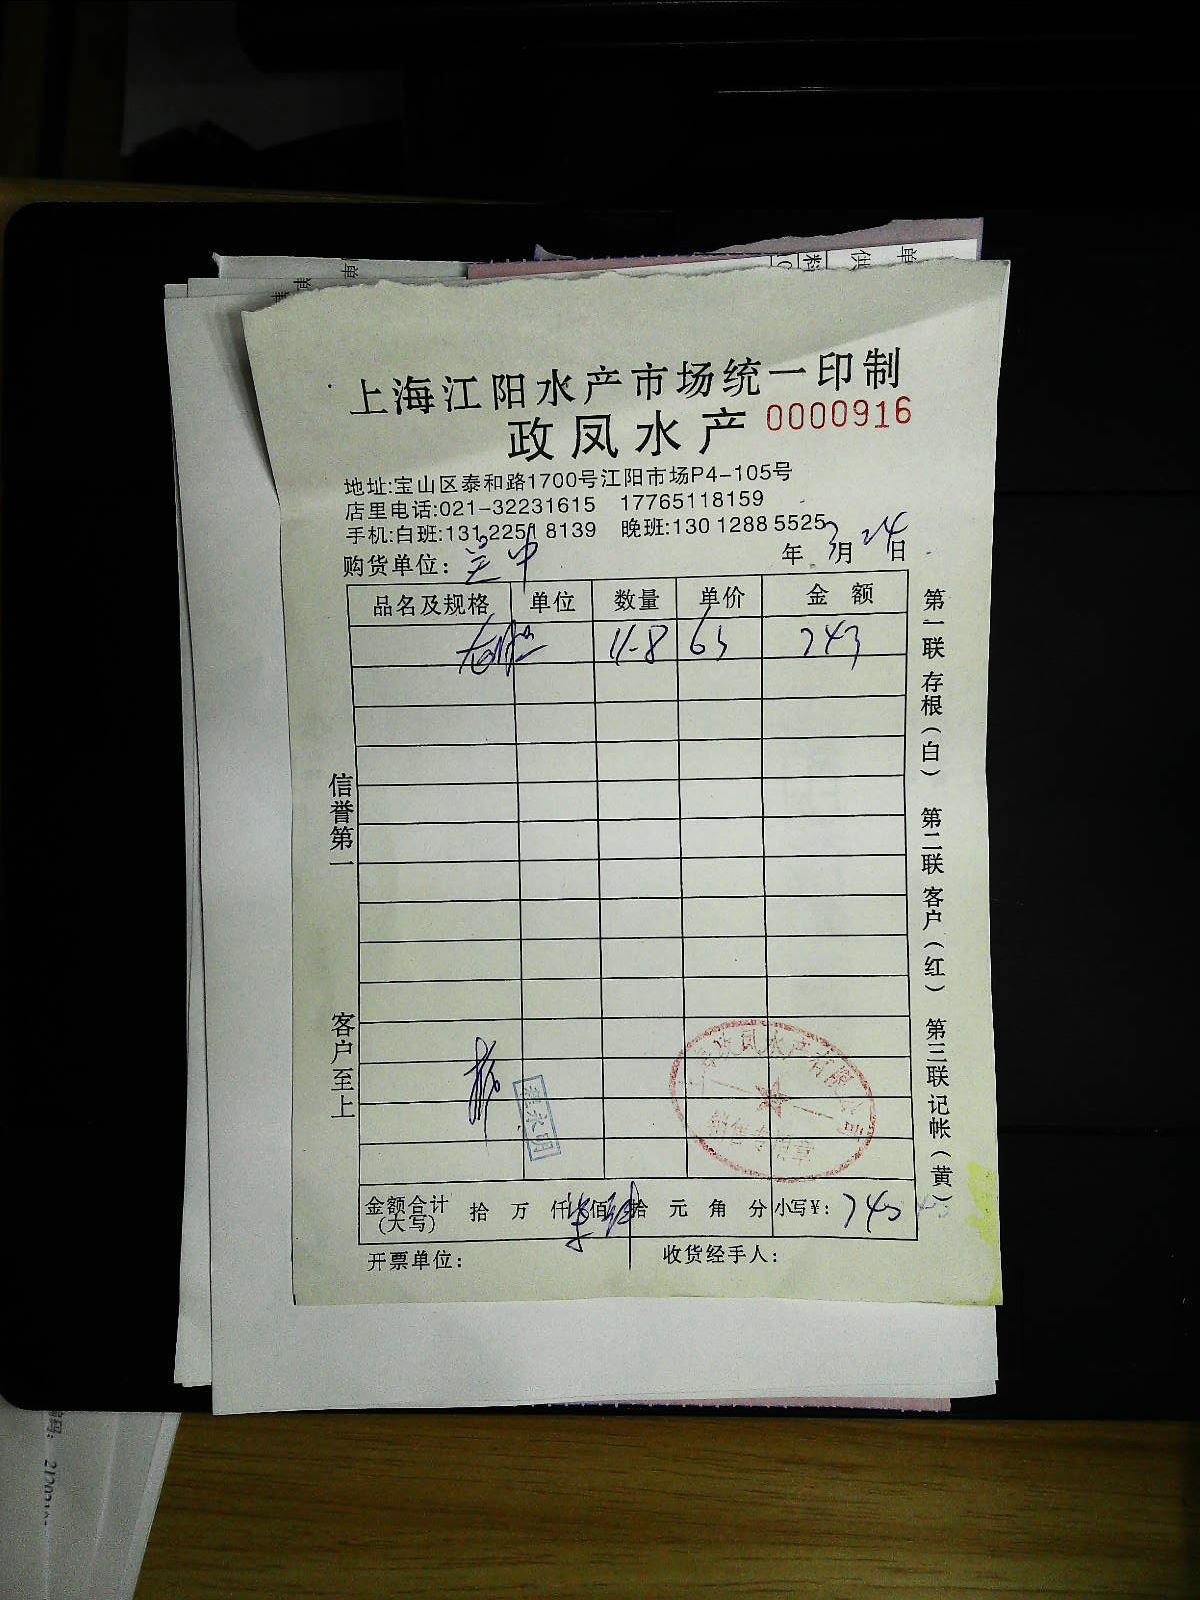 上海江阳水产市场统一印制
政凤水产 0000916
地址:宝山区泰和路1700号江阳市场P4-105号
店里电话:021-32231615 17765118159
手机:白班:131 2251 8139 晚班:130 1288 5525
购货单位: 兰中 年3月24日
品名及规格 单位 数量 单价 金额
11-8 63 743
信誉第一
客户至上
第一联 存根(白) 第二联 客户(红) 第三联 记帐(黄)
上海政凤水产有限公司
金额合计(大写) 拾 万 仟 佰 拾 元 角 分 小写¥: 743
开票单位: 收货经手人: